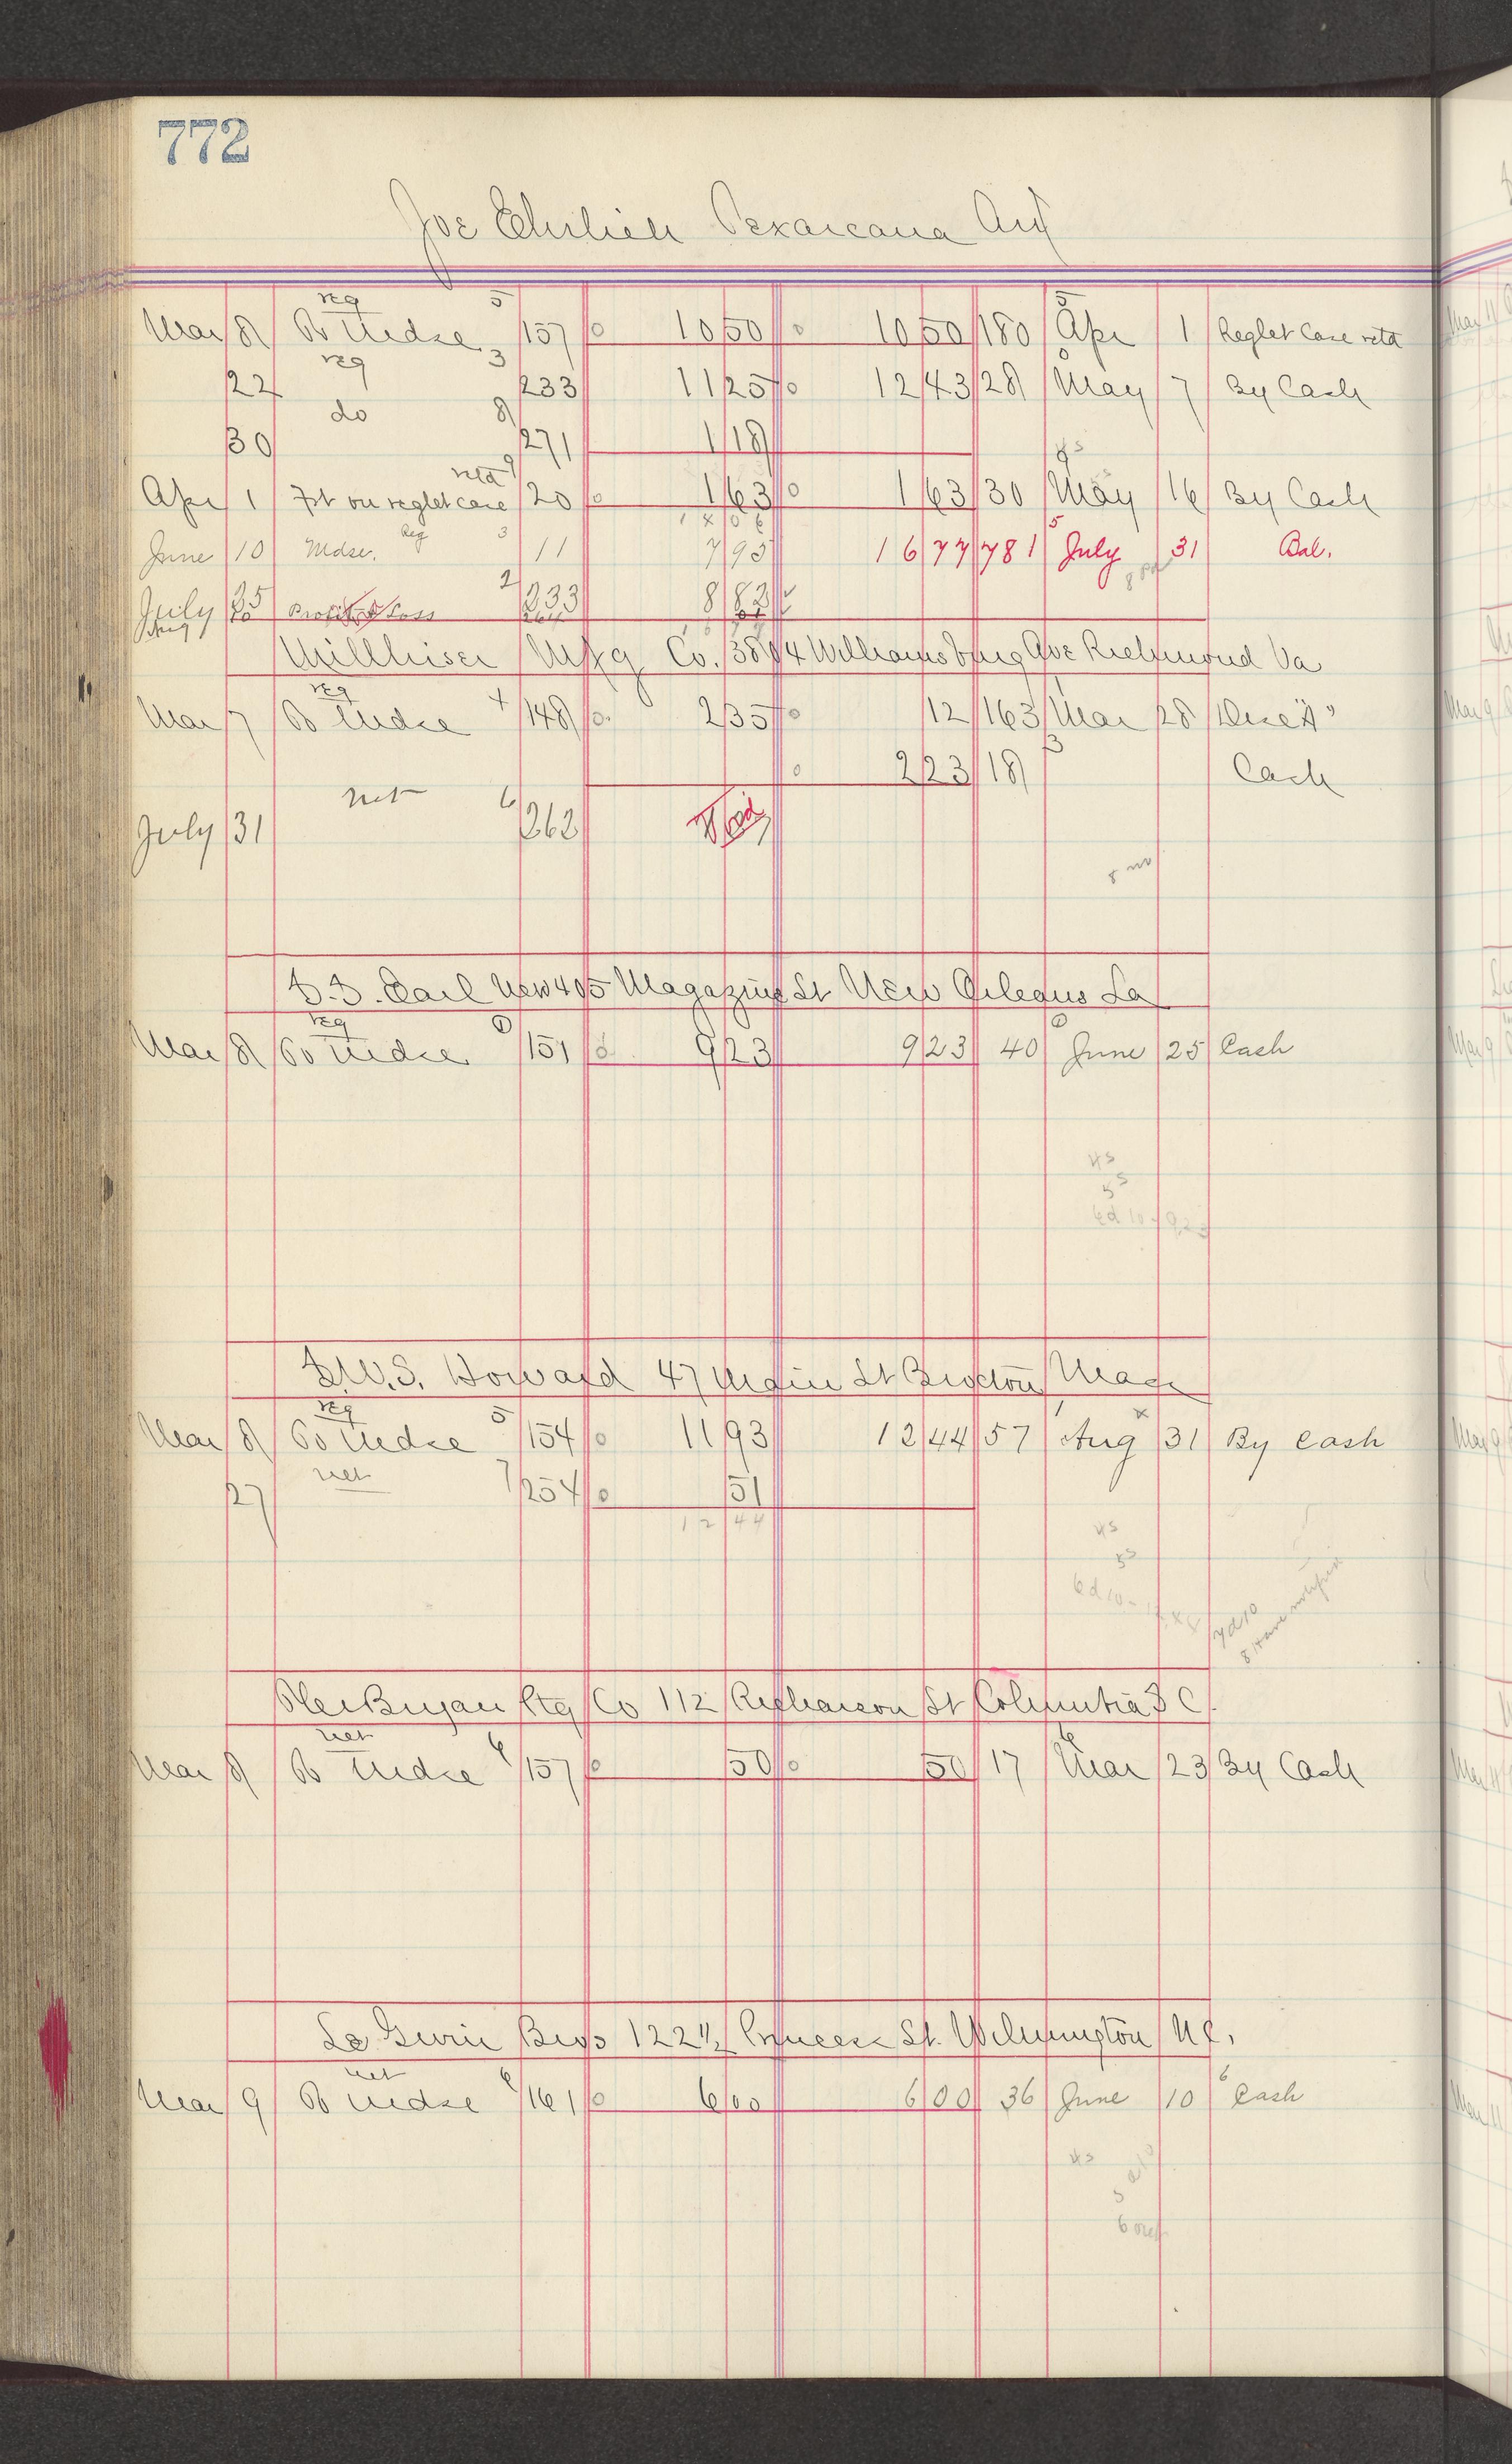 772
Joe Ehrlich Texarcana Ark
reg 5
Mar 8 To Mdse 157 10 50 10 50 180 Apr 1 Reglet Case retd
reg 3
22 233 11 25 12 43 28 May 7 By Cash
do 8
30 271 1 18
retd 9
Apr 1 Frt on reglet case 20 1 63 1 63 30 May 16 By Cash
Reg 3 5
June 10 Mdse. 11 7 95 16 77 781 July 31 Bal.
2
July 25 233 8 82
Profit & Loss
Aug 1
Millhiser Mfg Co. Williamsburg Ave Richmond Va
reg 4
Mar 7 To Mdse 148 2 35 12 163 Mar 28
2 23 18 Cash
net 6
July 31 262 Void
S.S. Carl New 405 Magazine St New Orleans La
reg
Mar 8 To Mdse 151 9 23 9 23 40 June 25 Cash
4s
5s
W.S. Howard 47 Main St Brocton Mass
reg 5
Mar 8 To Mdse 154 11 93 12 44 57 Aug 31 By Cash
net 7
27 254 51
12 44
4s
5s
Bryan Ptg Co 112 Columbia S C.
net 6 6
Mar 8 To Mdse 157 50 50 17 Mar 23 By Cash
Le Bros 122½ Princess St. Wilmington N C,
net 6 6
Mar 9 To Mdse 161 6 00 6 00 36 June 10 Cash
4s